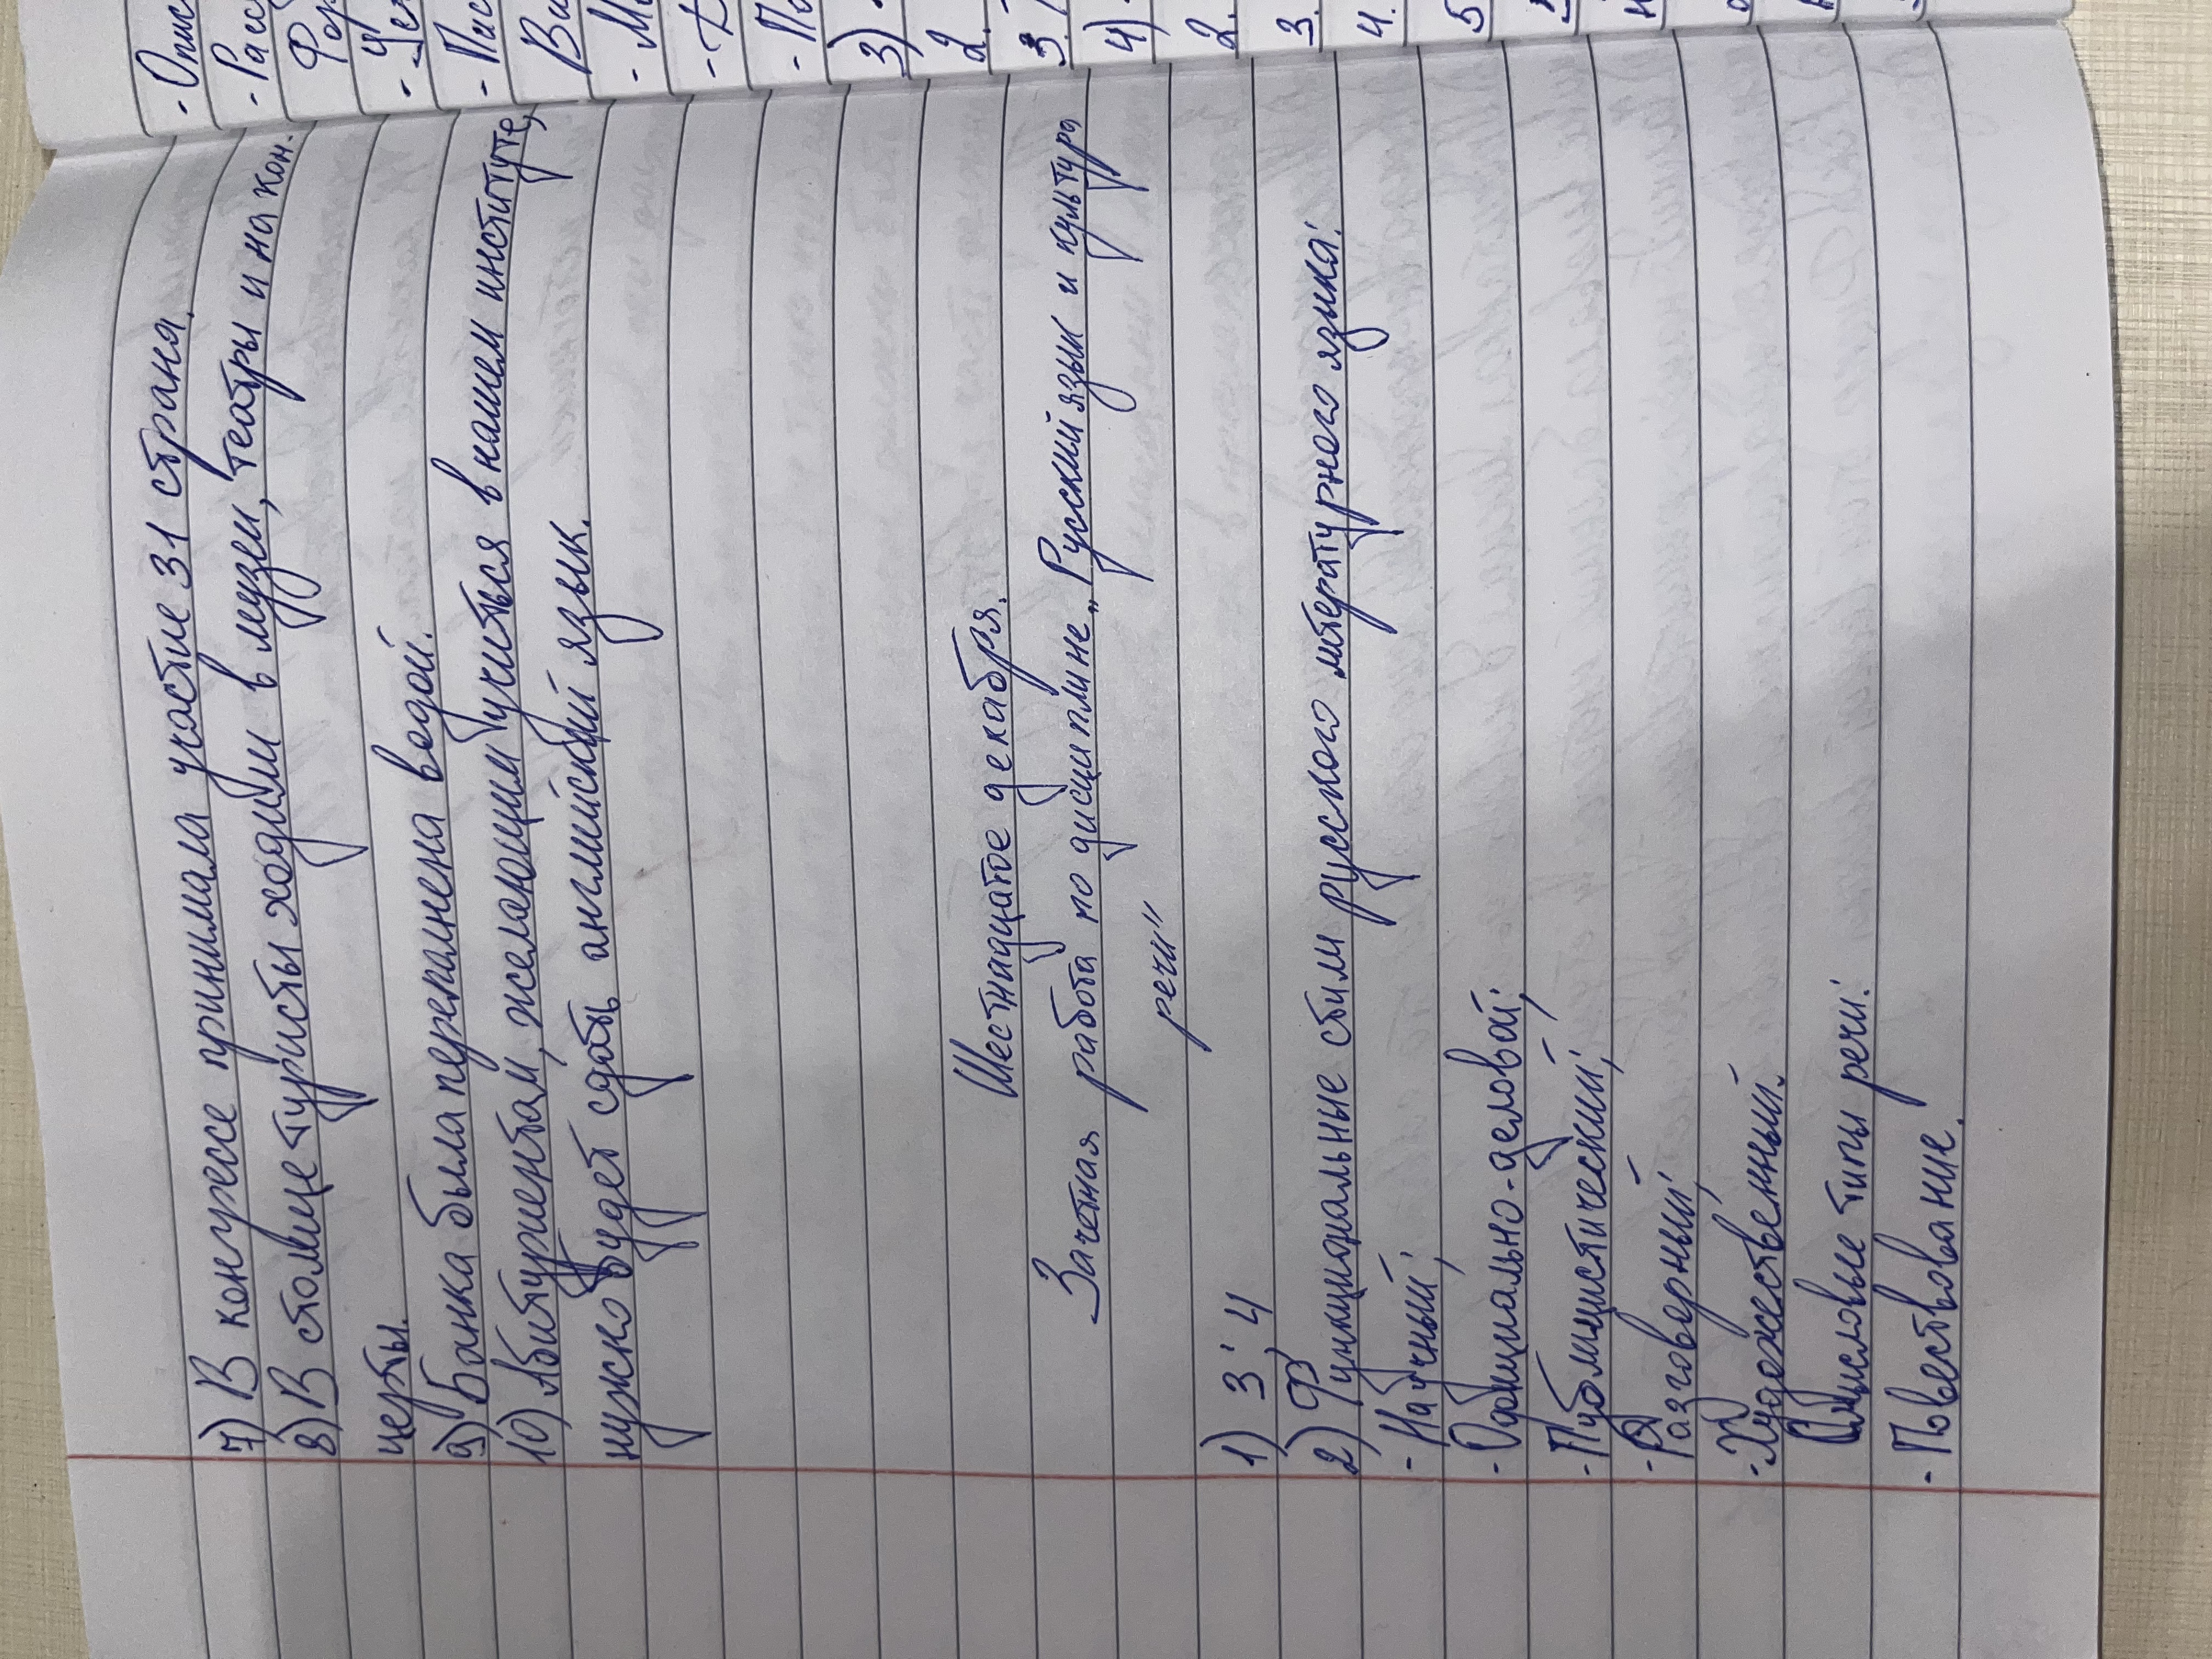 7) В конгрессе принимала участие 31 страна.
8) В столице туристы ходили в музеи, театры и на кон.
церты.
9) Банка была переполнена водой.
10) Абитуриентам, желающим учиться в нашем институте,
нужно будет сдать английский язык.
Шестнадцатое декабря.
Зачетная работа по дисциплине „Русский язык и культура
речи"
1) 3; 4
2) Функциональные стили русского литературного языка:
- Научный;
- Официально-деловой;
- Публицистический;
- Разговорный;
- Художественный.
Смысловые типы речи:
- Повествование.
- Опис
- Расс
- Пис
3)
2.
3.
4)
2.
3.
4.
5